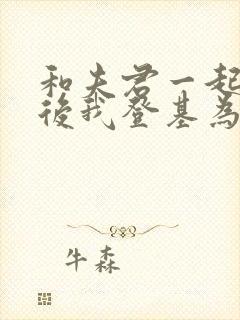 和夫君一起
後我登基為
牛森